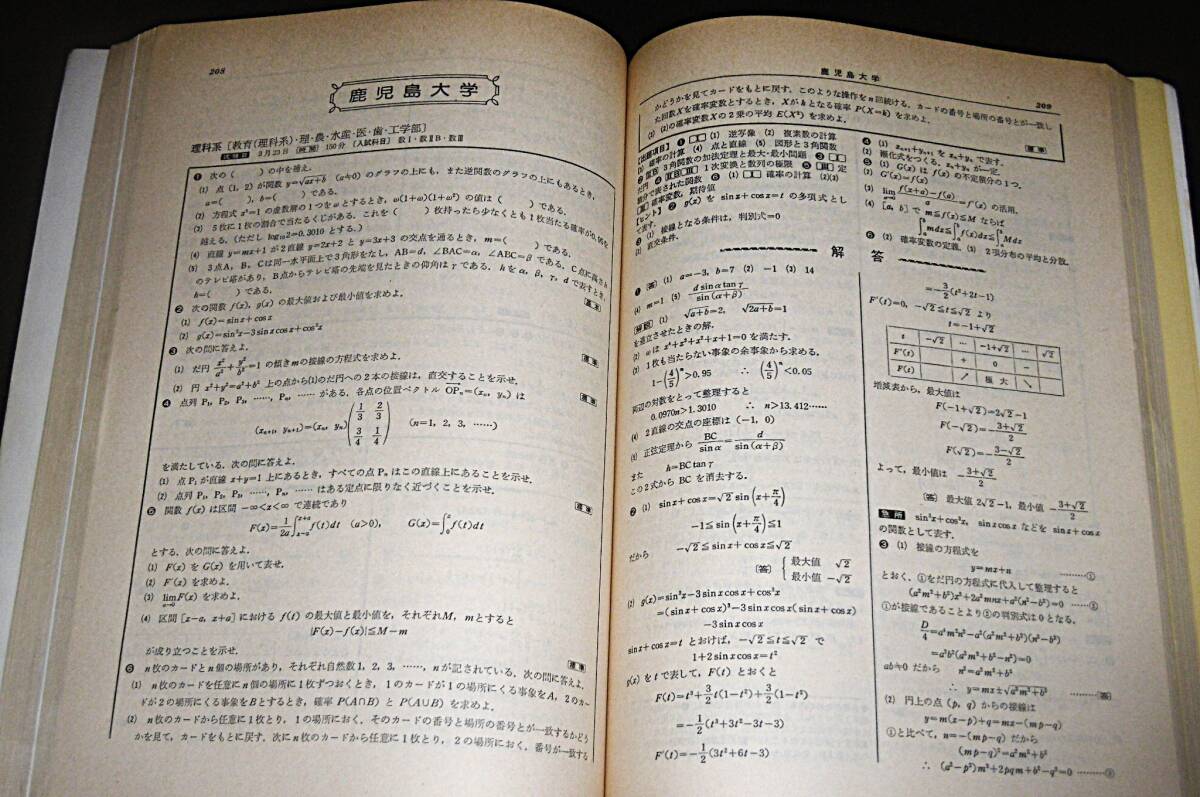 208
鹿児島大学
理科系〔教育(理科系)・理・農・水産・医・歯・工学部〕
3月23日 150分 〔入試科目〕 数Ⅰ・数ⅡB・数Ⅲ
❶ 次の( )の中を補え.
(1) 点(1, 2)が関数 y=√ax+b (a≠0)のグラフの上にも,また逆関数のグラフの上にもあるとき,
a=( ), b=( )である.
(2) 方程式 x⁵=1 の虚数解の1つをωとするとき, ω(1+ω)(1+ω²) の値は( )である.
(3) 5枚に1枚の割合で当たるくじがある.これを( )枚持ったら少なくとも1枚当たる確率が0.95を
越える.(ただし log₁₀2=0.3010 とする.)
(4) 直線 y=mx+1 が2直線 y=2x+2 と y=3x+3 の交点を通るとき, m=( )である.
(5) 3点A, B, Cは同一水平面上で3角形をなし, AB=d, ∠BAC=α, ∠ABC=β である. C点に高さh
のテレビ塔があり, B点からテレビ塔の先端を見たときの仰角はγである. hをα, β, γ, dで表すとき,
h=( )である.
❷ 次の関数 f(x), g(x) の最大値および最小値を求めよ.
(1) f(x)=sin x+cos x
(2) g(x)=sin³x−3sin x cos x+cos³x
❸ 次の問に答えよ.
(1) だ円 x²/a²+y²/b²=1 の傾きmの接線の方程式を求めよ.
(2) 円 x²+y²=a²+b² 上の点から(1)のだ円への2本の接線は,直交することを示せ.
❹ 点列 P₁, P₂, P₃, ……, Pₙ, …… がある.各点の位置ベクトル OPₙ=(xₙ, yₙ) は
(xₙ₊₁, yₙ₊₁)=(xₙ, yₙ)(1/3 2/3 3/4 1/4) (n=1, 2, 3, ……)
を満たしている.次の問に答えよ.
(1) 点P₁が直線 x+y=1 上にあるとき,すべての点Pₙはこの直線上にあることを示せ.
(2) 点列 P₁, P₂, P₃, ……, Pₙ, …… はある定点に限りなく近づくことを示せ.
❺ 関数 f(x) は区間 −∞<x<∞ で連続であり
F(x)=1/2a∫f(t)dt (a>0), G(x)=∫f(t)dt
とする.次の問に答えよ.
(1) F(x) を G(x) を用いて表せ.
(2) F′(x) を求めよ.
(3) lim F(x) を求めよ.
(4) 区間 [x−a, x+a] における f(t) の最大値と最小値を,それぞれM, mとすると
|F(x)−f(x)|≦M−m
が成り立つことを示せ.
❻ n枚のカードとn個の場所があり,それぞれ自然数1, 2, 3, ……, nが記されている.次の問に答えよ.
(1) n枚のカードを任意にn個の場所に1枚ずつおくとき, 1のカードが1の場所にくる事象をA, 2のカー
ドが2の場所にくる事象をBとするとき,確率 P(A∩B) と P(A∪B) を求めよ.
(2) n枚のカードから任意に1枚とり, 1の場所におく.そのカードの番号と場所の番号とが一致するかどう
かを見て,カードをもとに戻す.次にn枚のカードから任意に1枚とり, 2の場所におく.番号が一致する
鹿児島大学
209
かどうかを見てカードをもとに戻す.このような操作をn回続ける.カードの番号と場所の番号とが一致し
た回数Xを確率変数とするとき, Xがkとなる確率 P(X=k) を求めよ.
(3) (2)の確率変数Xの2乗の平均 E(X²) を求めよ.
【出題項目】❶ (1) 逆写像 (2) 複素数の計算
(3) 確率の計算 (4) 点と直線 (5) 図形と3角関数
3角関数の加法定理と最大・最小問題 ❸
だ円 ❹ 1次変換と数列の極限 ❺ 定
積分で表された関数 ❻ (1) 確率の計算 (2)(3)
確率変数,期待値
【ヒント】❷ g(x) を sin x+cos x=t の多項式とし
て表す.
❸ (1) 接線となる条件は,判別式=0
(2) 直交条件.
❹ (1) xₙ₊₁+yₙ₊₁ を xₙ+yₙ で表す.
(2) 漸化式をつくる.
❺ (1) G(x) は f(x) の不定積分の1つ.
(2) G′(x)=f(x)
(3) lim f(x+a)−f(x)/a=f′(x) の活用.
(4) [a, b] で m≦f(x)≦M ならば
∫mdx≦∫f(x)dx≦∫Mdx
❻ (2) 確率変数の定義. (3) 2項分布の平均と分散.
解 答
❶ 〔答〕 (1) a=−3, b=7 (2) −1 (3) 14
(4) m=1 (5) d sinα tanγ/sin(α+β)
〔解説〕 (1) √a+b=2, √2a+b=1
を連立させたときの解.
(2) ωは x⁴+x³+x²+x+1=0 を満たす.
(3) 1枚も当たらない事象の余事象から求める.
1−(4/5)ⁿ>0.95 ∴ (4/5)ⁿ<0.05
両辺の対数をとって整理すると
0.0970n>1.3010 ∴ n>13.412……
(4) 2直線の交点の座標は (−1, 0)
(5) 正弦定理から BC/sinα=d/sin(α+β)
また h=BC tanγ
この2式から BC を消去する.
❷ (1) sin x+cos x=√2 sin(x+π/4)
−1≦sin(x+π/4)≦1
だから −√2≦sin x+cos x≦√2
〔答〕 { 最大値 √2
最小値 −√2
(2) g(x)=sin³x−3sin x cos x+cos³x
=(sin x+cos x)³−3sin x cos x(sin x+cos x)
−3sin x cos x
sin x+cos x=t とおけば, −√2≦t≦√2 で
1+2sin x cos x=t²
g(x) を t で表して, F(t) とおくと
F(t)=t³+3/2t(1−t²)+3/2(1−t²)
=−1/2(t³+3t²−3t−3)
F′(t)=−1/2(3t²+6t−3)
=−3/2(t²+2t−1)
F′(t)=0, −√2≦t≦√2 より
t=−1+√2
t −√2 … −1+√2 … √2
F′(t) + 0 −
F(t) ↗ 極大 ↘
増減表から,最大値は
F(−1+√2)=2√2−1
F(−√2)=−3+√2/2
F(√2)=−3−√2/2
よって,最小値は −3+√2/2
〔答〕 最大値 2√2−1, 最小値 −3+√2/2
急所 sin³x+cos³x, sin x cos x などを sin x+cos x
の関数として表す.
❸ (1) 接線の方程式を
y=mx+n ………①
とおく.①をだ円の方程式に代入して整理すると
(a²m²+b²)x²+2a²mnx+a²(n²−b²)=0 ……②
①が接線であることより②の判別式は0となる.
D/4=a⁴m²n²−a²(a²m²+b²)(n²−b²)
=a²b²(a²m²+b²−n²)=0
ab≠0 だから n²=a²m²+b²
∴ y=mx±√a²m²+b² ………〔答〕
(2) 円上の点 (p, q) からの接線は
y=m(x−p)+q=mx−(mp−q)
①と比べて, n=−(mp−q) だから
(mp−q)²=a²m²+b²
∴ (a²−p²)m²+2pqm+b²−q²=0 ………③